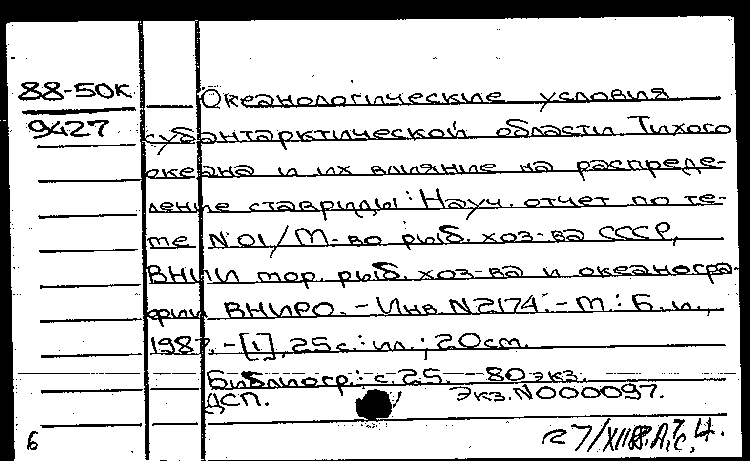 88-50К
9427
Океанологические условия
субантарктической области Тихого
океана и их влияние на распреде-
ление ставриды: Науч. отчет по те-
ме N01/М-во рыб. хоз-ва СССР,
ВНИИ мор. рыб. хоз-ва и океаногра-
фии ВНИРО. - Инв. N2174. - М.: Б. и.,
1987. - [1], 25 с.: ил.; 20см.
Библиогр.: с. 25. - 80 экз.
ДСП. Экз. N000097.
6
27/XII88.